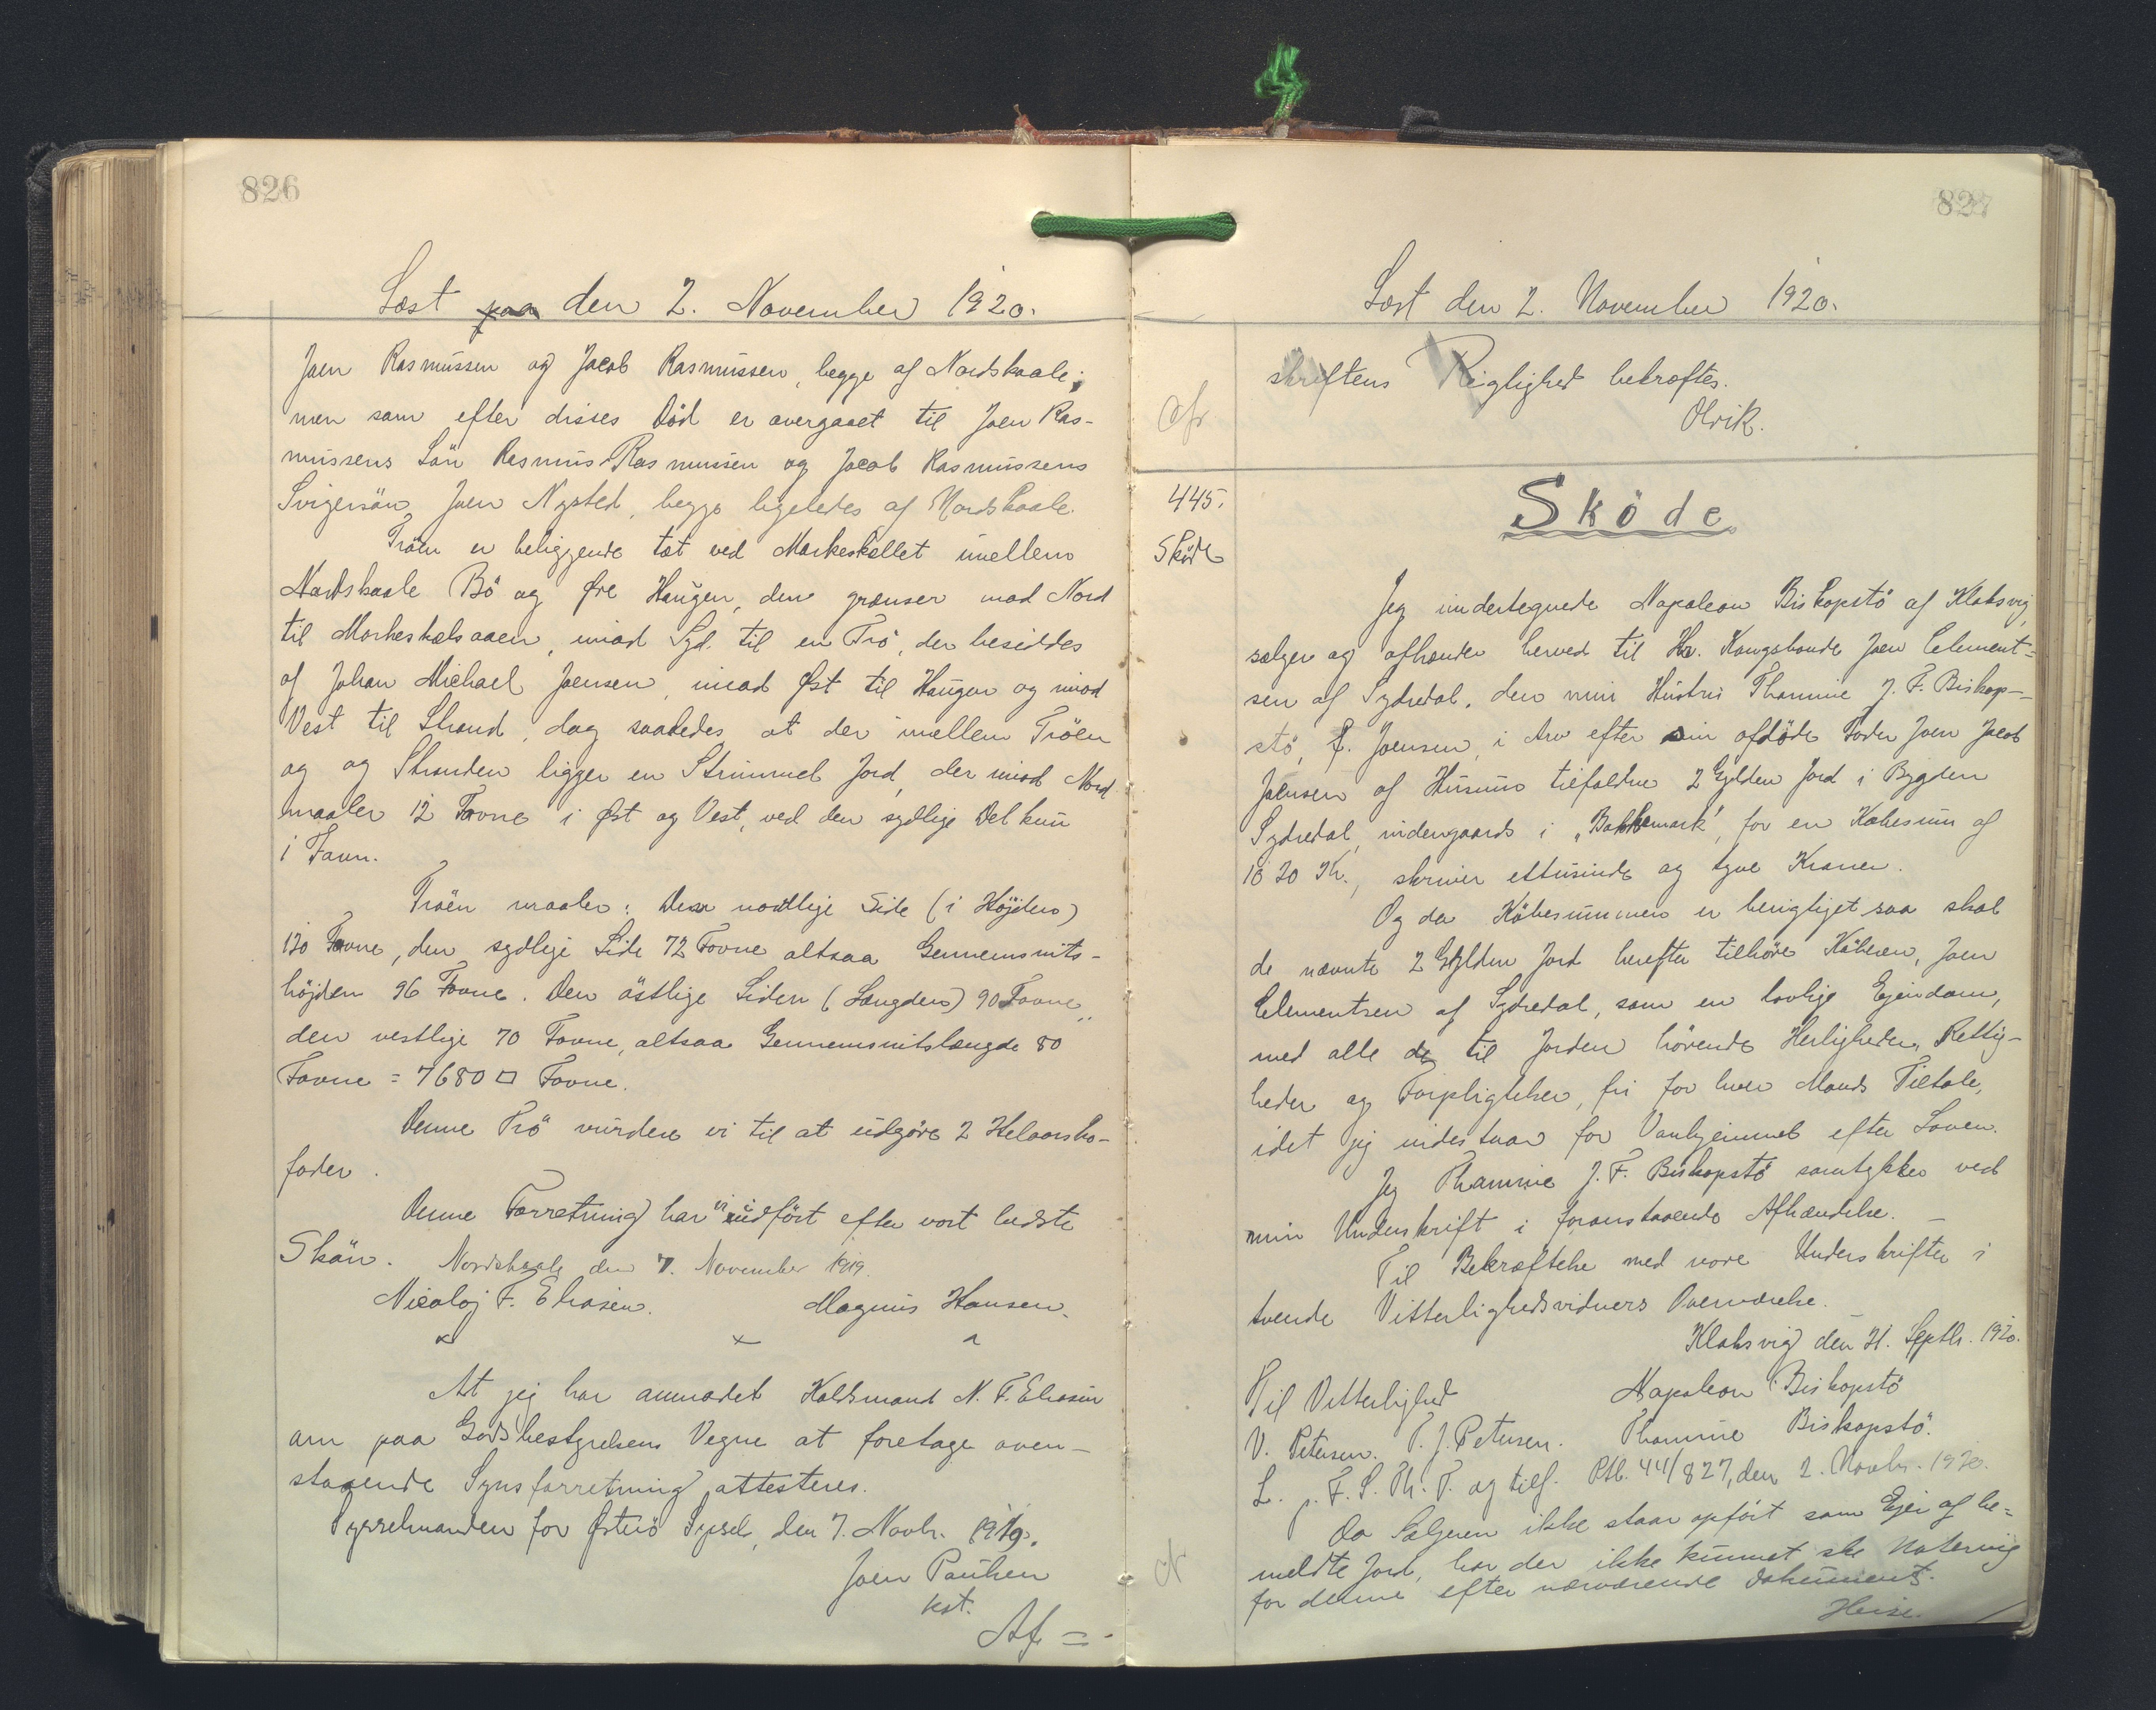 826
Læst paa den 2. November 1920.
Joen Rasmussen og Jacob Rasmussen, begge af Nordskaale;
men som efter disses Död er overgaaet til Joen Ras-
mussens Sön Rasmus Rasmussen og Jacob Rasmussens
Svigersön, Joen Nysted, begge ligeledes af Nordskaale.
Tröen er beliggende tæt ved Markeskellet imellem
Nordskaale Bö og Øre Haugen, den grænser mod Nord
til Morkeskelsaaen, imod Syd til en Trö, der besiddes
af Johan Michael Joensen, imod Øst til Haugen og imod
Vest til Strand, dog saaledes at der imellem Tröen
og og Stranden ligger en Strimmel Jord, der imod Nord
maaler 12 Favne i Øst og Vest, ved den sydlige Del kun
1 Favn.
Tröen maaler: Den nordlige Side (i Höjden)
120 Favne, den sydlige Side 72 Favne altsaa Gennemsnits-
höjden 96 Favne. Den östlige Siden (Længden) 90 Favne,
den vestlige 70 Favne, altsaa Gennemsnitslængde 80
Favne = 7680 □ Favne.
Denne Trö vurdere vi til at udgöre 2 Helaarsko-
foder.
Denne Forretning har vi udfört efter vort bedste
Skön. Nordskaale den 7. November 1919.
Nicolaj F. Eliasen. Magnus Hansen.
x x x
At jeg har anmodet Holdsmand N. F. Eliasen
om paa Godsbestyrelsens Vegne at foretage oven-
staaende Synsforretning attesteres.
Sysselmanden for Østerö Syssel, den 7. Novbr. 1919.
Joen Paulsen
kst.
Af =
827
Læst den 2. November 1920.
skriftens Rigtighed bekræftes.
Olrik.
afr.
445.
Sköde
Sköde
Jeg undertegnede Napoleon Biskopstö af Klaksvig,
sælger og afhænder herved til Hr. Kongsbonde Joen Clement-
sen af Sydredal, den min Hustru Thomine J. F. Biskop-
stö, f. Joensen, i Arv efter sin afdöde Fader Joen Jacob
Joensen af Husum tilfaldne 2 Gylden Jord i Bygden
Sydredal, indengaards i „Bakkemark", for en Købesum af
1020 Kr., skriver ettusinde og tyve Kroner.
Og da Köbesummen er berigtiget saa skal
de nævnte 2 Gylden Jord herefter tilhöre Köberen, Joen
Clementsen af Sydredal, som en lovlige Ejendom,
med alle de til Jorden hörende Herligheder, Rettig-
heder og Forpligtelser, fri for hver Mands Tiltale,
idet jeg indestaar for Vanhjemmel efter Loven.
Jeg Thomine J. F. Biskopstö samtykker ved
min Underskrift i foranstaaende Afhændelse. -
Til Bekræftelse med vore Underskrifter i
tvende Vitterlighedsvidners Overværelse. -
Klaksvig den 21. Septbr. 1920.
Til Vitterlighed Napoleon Biskopstö
V. Petersen. P. J. Petersen. Thomine Biskopstö.
L. p. F. S. Th. T. og tilf. Ptb. 44/827, den 2. Novbr. 1920.
Da Sælgeren ikke staar opfört som Ejer af be-
meldte Jord, har der ikke kunnet ske Notering
for denne efter nærværende Dokument.
Heise.